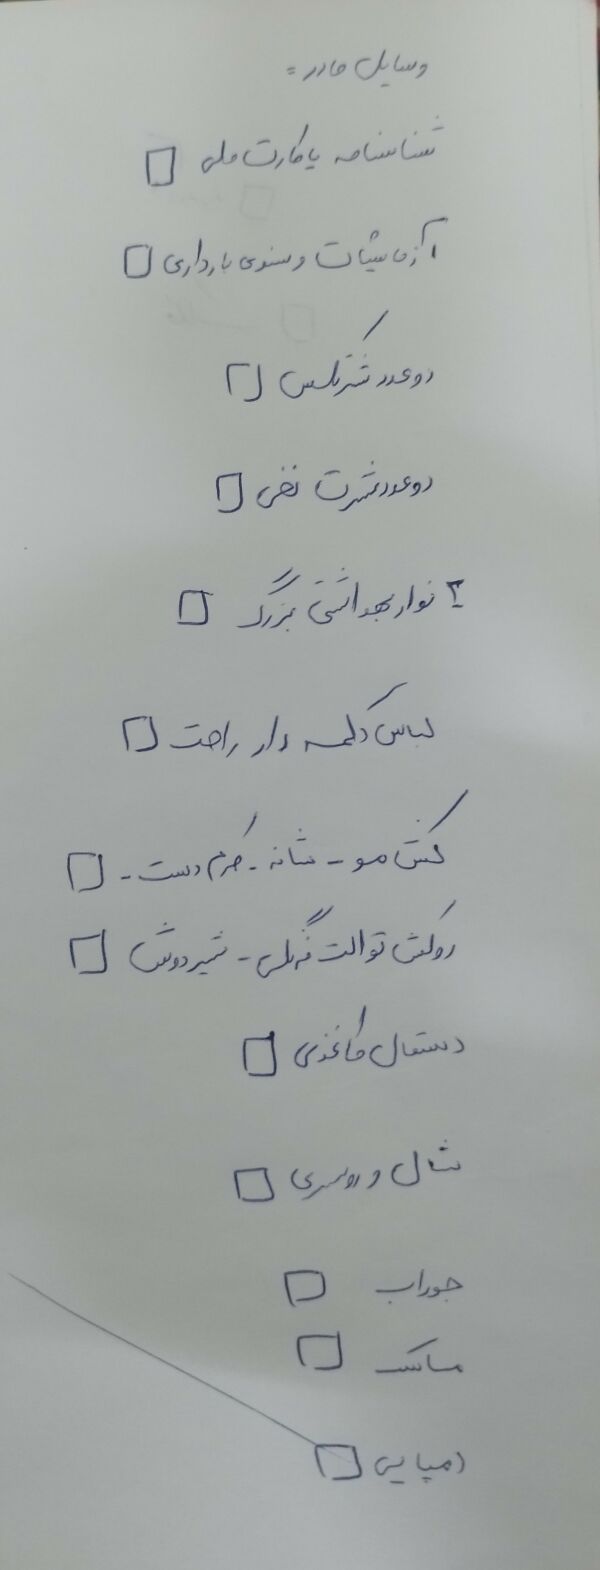 وسایل مادر =
شناسنامه یا کارت ملی
آزمایشات و سنوی بارداری
دو عدد
دو عدد شرت نخی
۲ نوار بهداشتی بزرگ
لباس دکمه دار راحت
کش مو - شانه - کرم دست -
روکش توالت فرنگی - شیردوش
دستمال کاغذی
شال و روسری
جوراب
ماسک
دمپایی